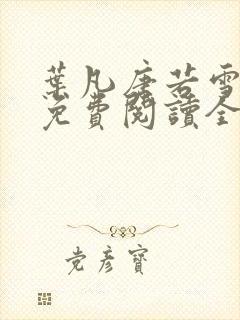 葉凡唐若雪
免費閱讀全
党彥寶